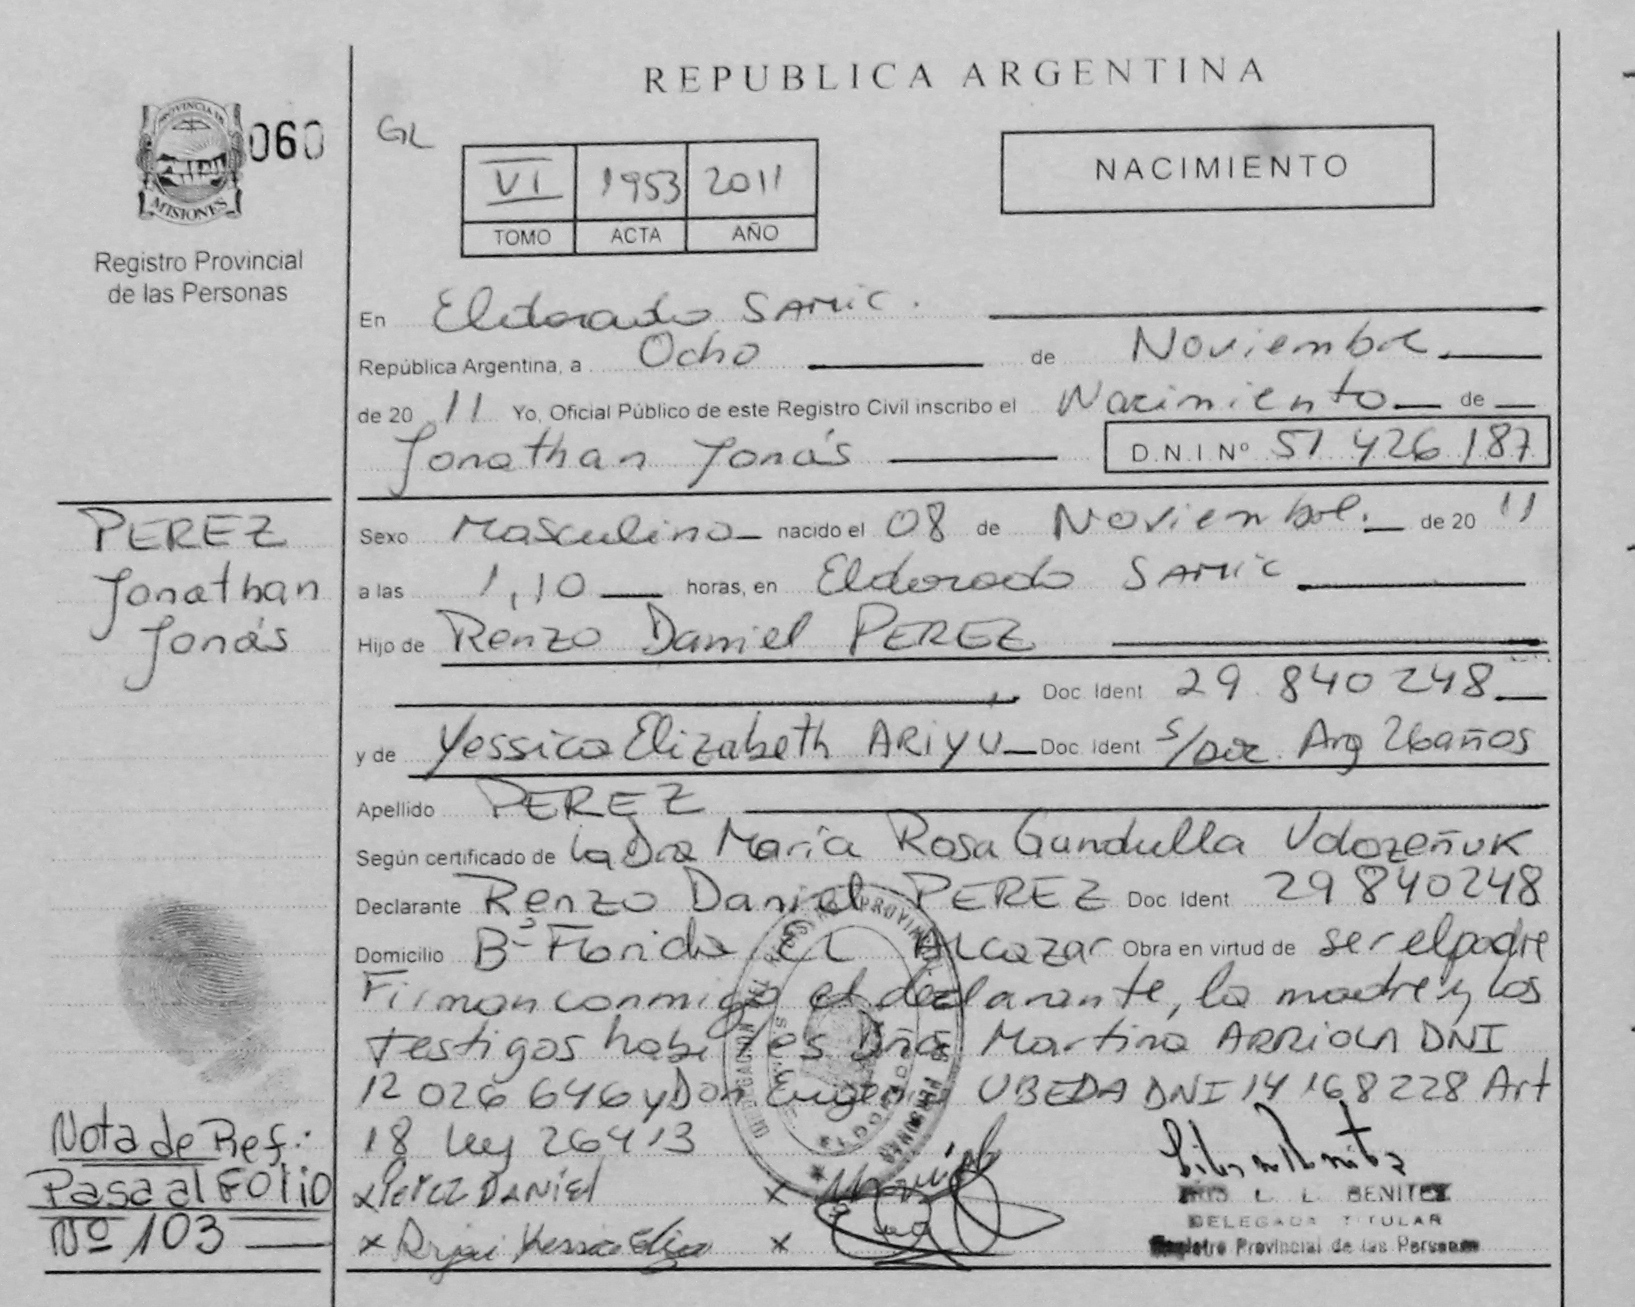 REPUBLICA ARGENTINA
PROVINCIA DE
MISIONES
060
Registro Provincial
de las Personas
GL
VI 1953 2011
TOMO ACTA AÑO
NACIMIENTO
En Eldorado SAMIC.
República Argentina, a Ocho de Noviembre.
de 20 11 Yo, Oficial Público de este Registro Civil inscribo el Nacimiento de
Jonathan Jonás D.N.I Nº 51 426 187
PEREZ
Jonathan
Jonás
Sexo Masculino nacido el 08 de Noviembre. de 20 11
a las 1,10 horas, en Eldorado SAMIC
Hijo de Renzo Daniel PEREZ
Doc. Ident 29.840 248
y de Yessica Elizabeth ARIYU Doc. Ident s/doc. Arg 26 años
Apellido PEREZ
Según certificado de la Dra María Rosa Gundulla
Declarante Renzo Daniel PEREZ Doc. Ident 29 840248
Domicilio Bº Florida El Alcazar Obra en virtud de ser el padre
Firman conmigo el declarante, la madre y los
testigos habiles Dña Martina ARRIOLA DNI
12 026 646 y Don Eugenio UBEDA DNI 14 168 228 Art
18 ley 26413
Nota de Ref.:
Pasa al FOLIO
Nº 103
x PEREZ DANIEL x
x x
L. L. BENITEZ
DELEGADA TITULAR
Registro Provincial de las Personas